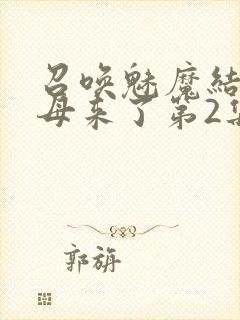 召唤魅魔结
母来了第2集
郭旃